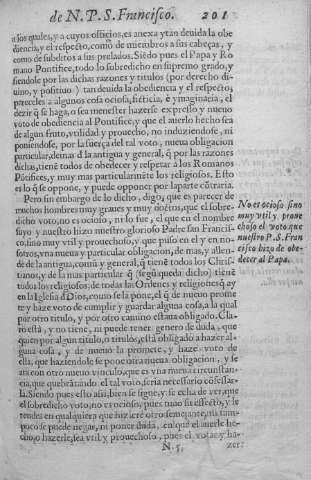 de N. P. S. Francisco. 201
a los quales, y a cuyos officios, es anexa y tan deuida la obe
diencia, y el respecto, como de miembros a sus cabeças, y
como de subditos a sus prelados. Siẽdo pues el Papa y Ro
mano Pontifice, todo lo subredicho en supremo grado, y
siendole por las dichas razones y titulos (por derecho di
uino, y positiuo) tan deuida la obediencia y el respecto;
pareceles a algunos cosa ociosa, ficticia, è ymaginaria, el
dezir q̃ se haga, o sea menester hazerse expresso y nueuo
voto de obediencia al Pontifice, y que el auerlo hecho sea
de algun fruto, vtilidad y prouecho, no induziendose, ni
poniendose, por la fuerça del tal voto, nueua obligacion
particular, demas d̃ la antigua y general, q̃ por las razones
dichas, tienẽ todos de obedecer y respetar a los Romanos
Põtifices, y muy mas particularmẽte los religiosos. Esto
es lo q̃ se oppone, y puede opponer por la parte cõtraria.
Pero sin embargo de lo dicho, digo; que es parecer de
muchos hombres muy graues y muy doctos, que el sobre
dicho voto, no es ocioso, ni lo fue, el que en el nombre
suyo y nuestro hizo nuestro glorioso Padre san Francis-
co, sino muy vtil y prouechoso, y que puso en el y en no-
sotros, vna nueua y particular obligacion, de mas, y allen-
de de la antigua, comũ y general, q̃ tienẽ todos los Chris-
tianos, y de la mas particular q̃ (segũ queda dicho) tienẽ
todos los religiosos, de todas las Ordenes y religiones q̃ ay
en la Iglesia d̃ Dios, como se la pone, el q̃ de nueuo prome
te y haze voto de cumplir y guardar alguna cosa, a la qual
por otro titulo, y por otro camino estaua obligado. Cla-
ro està, y no tiene, ni puede tener genero de duda, que
quien por algun titulo, o titulos, està obligado a hazer al-
guna cosa, y de nueuo la promete, y haze voto de
ella, que haziendole se pone otra nueua obligacion, y se
ata con otro nueuo vinculo, que es vna nueua circunstan-
cia, que quebrãtando el tal voto, seria necessario cõfessar-
la. Siendo pues esto assi, bien se sigue, y se echa de ver, que
el sobredicho voto, no es ocioso, pues tuuo su effecto, y le
tendrà en qualquiera que hiziere otro semejante, ni tam-
poco se puede negar, ni poner duda, en que el auerle he-
cho, o hazerle, sea vtil y prouechoso, pues el votar, y ha-
N. 5. zer
No es ocioso sino
muy vtil y proue
choso el voto que
nuestro P. S. Fran
cisco hizo de obe-
decer al Papa.